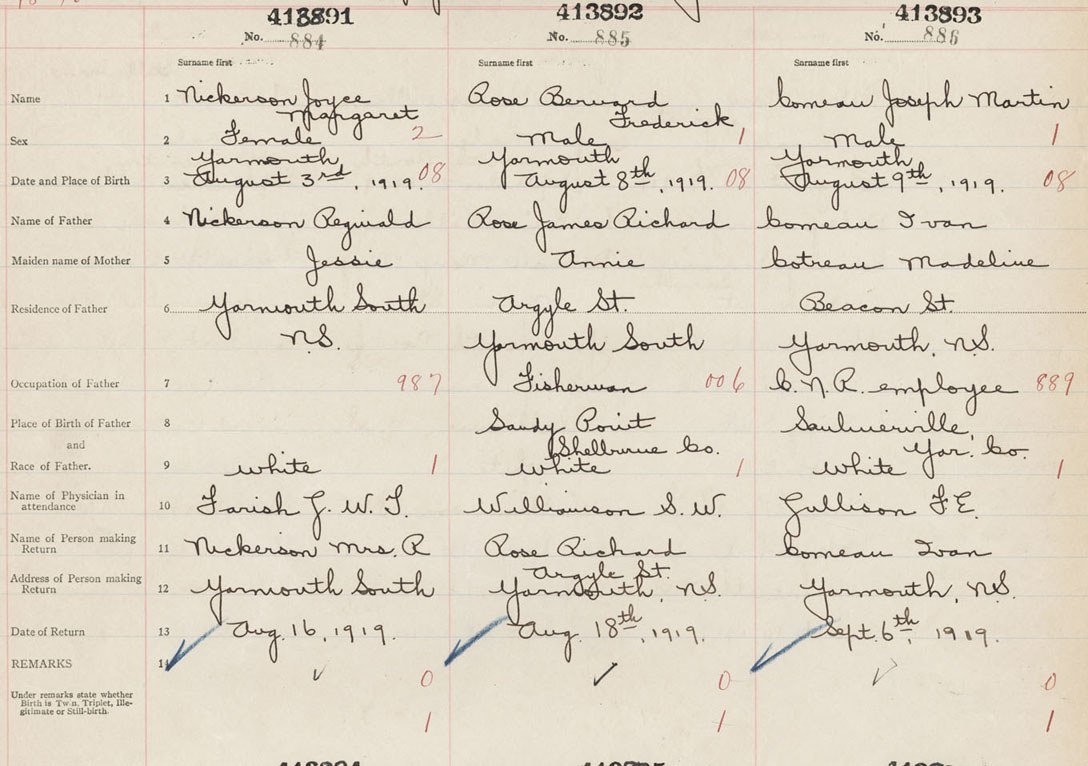 413891 413892 413893
No. 884 No. 885 No. 886
Surname first Surname first Surname first
Name 1 Nickerson Joyce Rose Bernard Comeau Joseph Martin
Margaret Frederick
Sex 2 Female 2 Male 1 Male 1
Yarmouth Yarmouth Yarmouth
Date and Place of Birth 3 August 3rd, 1919. 08 August 8th, 1919. 08 August 9th, 1919. 08
Name of Father 4 Nickerson Reginald Rose James Richard Comeau Ivan
Maiden name of Mother 5 Jessie Annie Cotreau Madeline
Residence of Father 6 Yarmouth South Argyle St. Beacon St.
N.S. Yarmouth South Yarmouth, N.S.
Occupation of Father 7 987 Fisherman 006 C.N.R. employee 889
Place of Birth of Father 8 Sandy Point Saulnierville,
and Shelburne Co. Yar. Co.
Race of Father. 9 white 1 white 1 white 1
Name of Physician in
attendance 10 Farish G. W. T. Williamson S. W. Gullison F.E.
Name of Person making
Return 11 Nickerson Mrs. R Rose Richard Comeau Ivan
Address of Person making Argyle St.
Return 12 Yarmouth South Yarmouth, N.S. Yarmouth, N.S.
Date of Return 13 Aug. 16, 1919. Aug. 18th, 1919. Sept. 6th, 1919.
REMARKS 14 ✓ ✓ ✓
0 0 0
Under remarks state whether
Birth is Twin, Triplet, Ille-
gitimate or Still-birth. 1 1 1